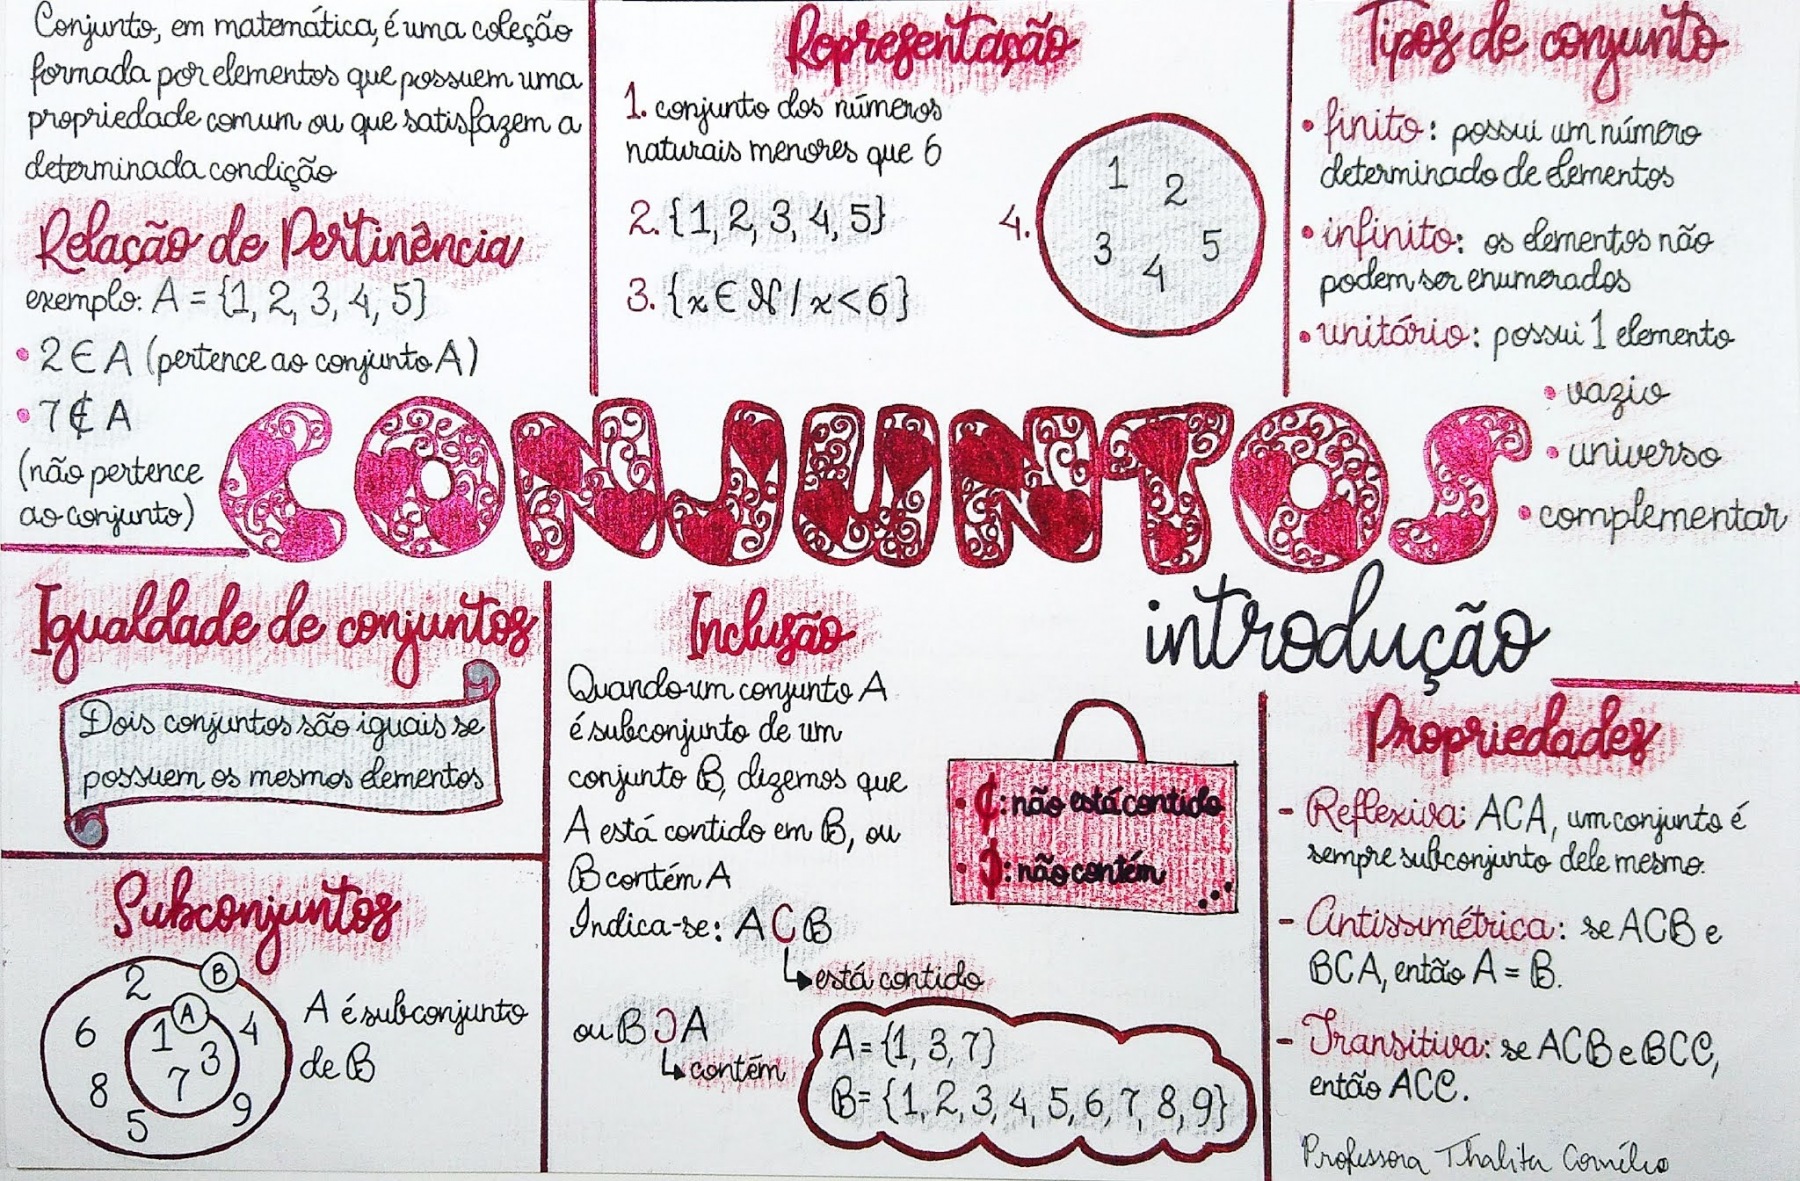 Conjunto, em matemática, é uma coleção
formada por elementos que possuem uma
propriedade comum ou que satisfazem a
determinada condição
Relação de Pertinência
exemplo: A = {1, 2, 3, 4, 5}
• 2 ∈ A (pertence ao conjunto A)
• 7 ∉ A
(não pertence
ao conjunto)
Representação
1. conjunto dos números
naturais menores que 6
2. {1, 2, 3, 4, 5}
3. {x ∈ N / x < 6}
4.
1 2
3 4 5
Tipos de conjunto
• finito: possui um número
determinado de elementos
• infinito: os elementos não
podem ser enumerados
• unitário: possui 1 elemento
• vazio
• universo
• complementar
CONJUNTOS
introdução
Igualdade de conjuntos
Dois conjuntos são iguais se
possuem os mesmos elementos
Subconjuntos
2 B
6 1 A 4
7 3
8 5 9
A é subconjunto
de B
Inclusão
Quando um conjunto A
é subconjunto de um
conjunto B, dizemos que
A está contido em B, ou
B contém A
Indica-se: A ⊂ B
está contido
ou B ⊃ A
contém
• ⊄: não está contido
• ⊅: não contém
A = {1, 3, 7}
B = {1, 2, 3, 4, 5, 6, 7, 8, 9}
Propriedades
- Reflexiva: A⊂A, um conjunto é
sempre subconjunto dele mesmo.
- Antissimétrica: se A⊂B e
B⊂A, então A = B.
- Transitiva: se A⊂B e B⊂C,
então A⊂C.
Professora Thalita Cornélio